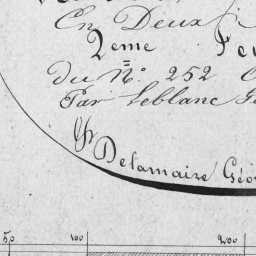 En Deux
2eme Feu
du N.° 252
Par Leblanc Gé
Delamaire Géo
50 100 200